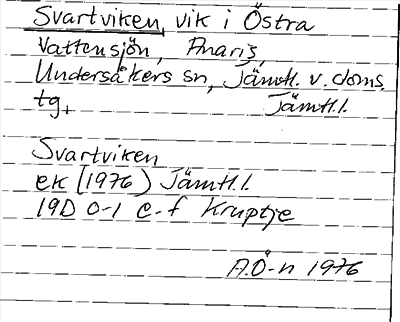 Svartviken, vik i Östra
Vattensjön, Anaris,
Undersåkers sn, Jämtl. v. doms.
tg, Jämtl.l.
Svartviken
ek (1976) Jämtl.l.
19D 0-1 e-f Kruptje
A.Ö-n 1976